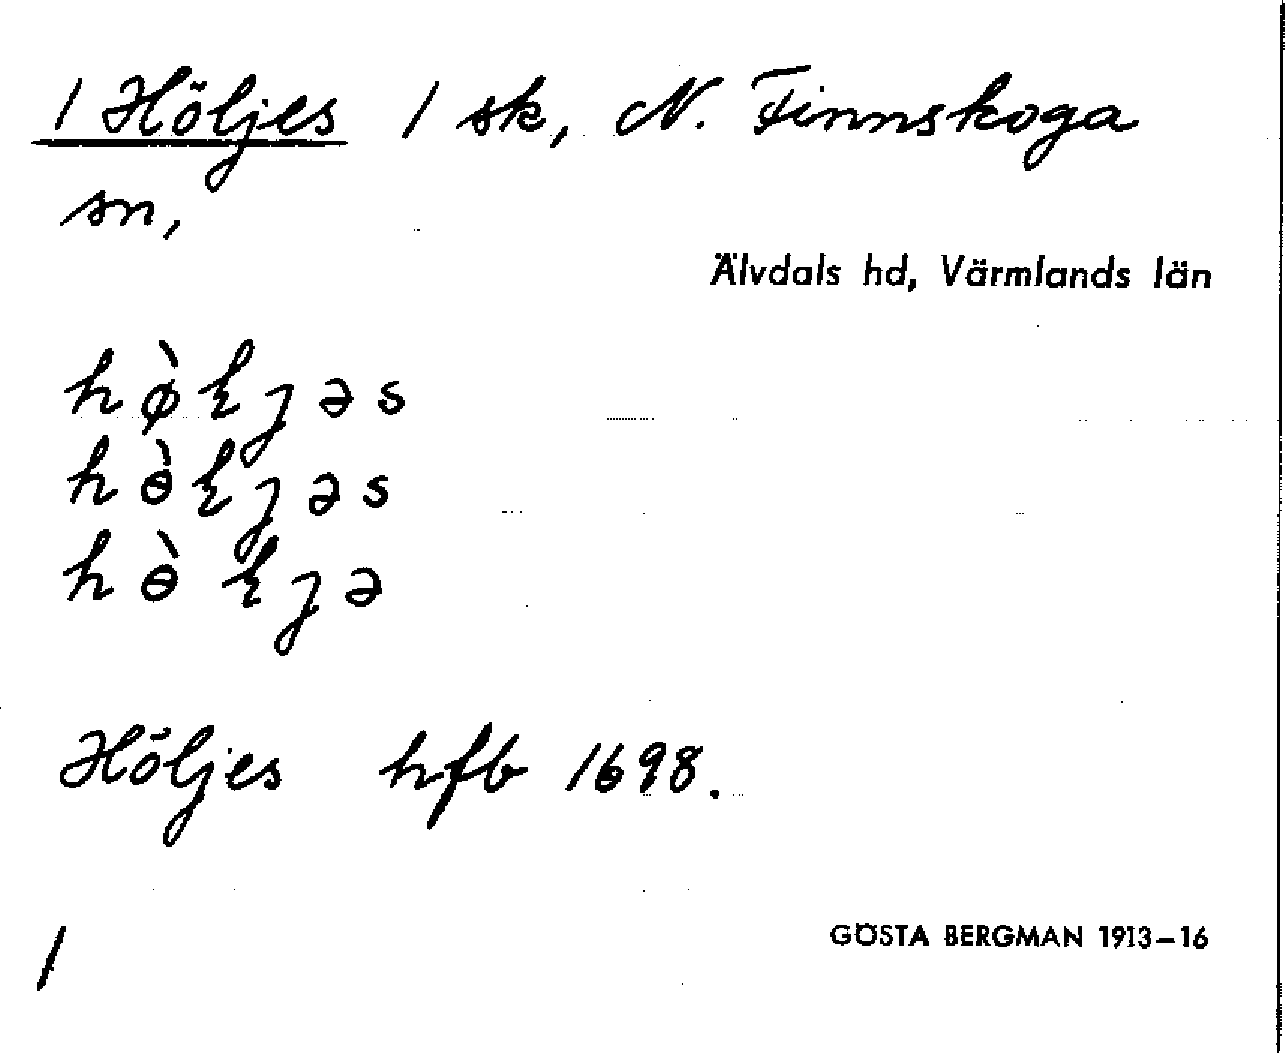 1 Höljes 1 sk, N. Finnskoga
sn,
Älvdals hd, Värmlands län
hø̀ɫjəs
hɵ̀ɫjəs
hɵ̀ɫjə
Höljes hfb 1698.
1
GÖSTA BERGMAN 1913–16